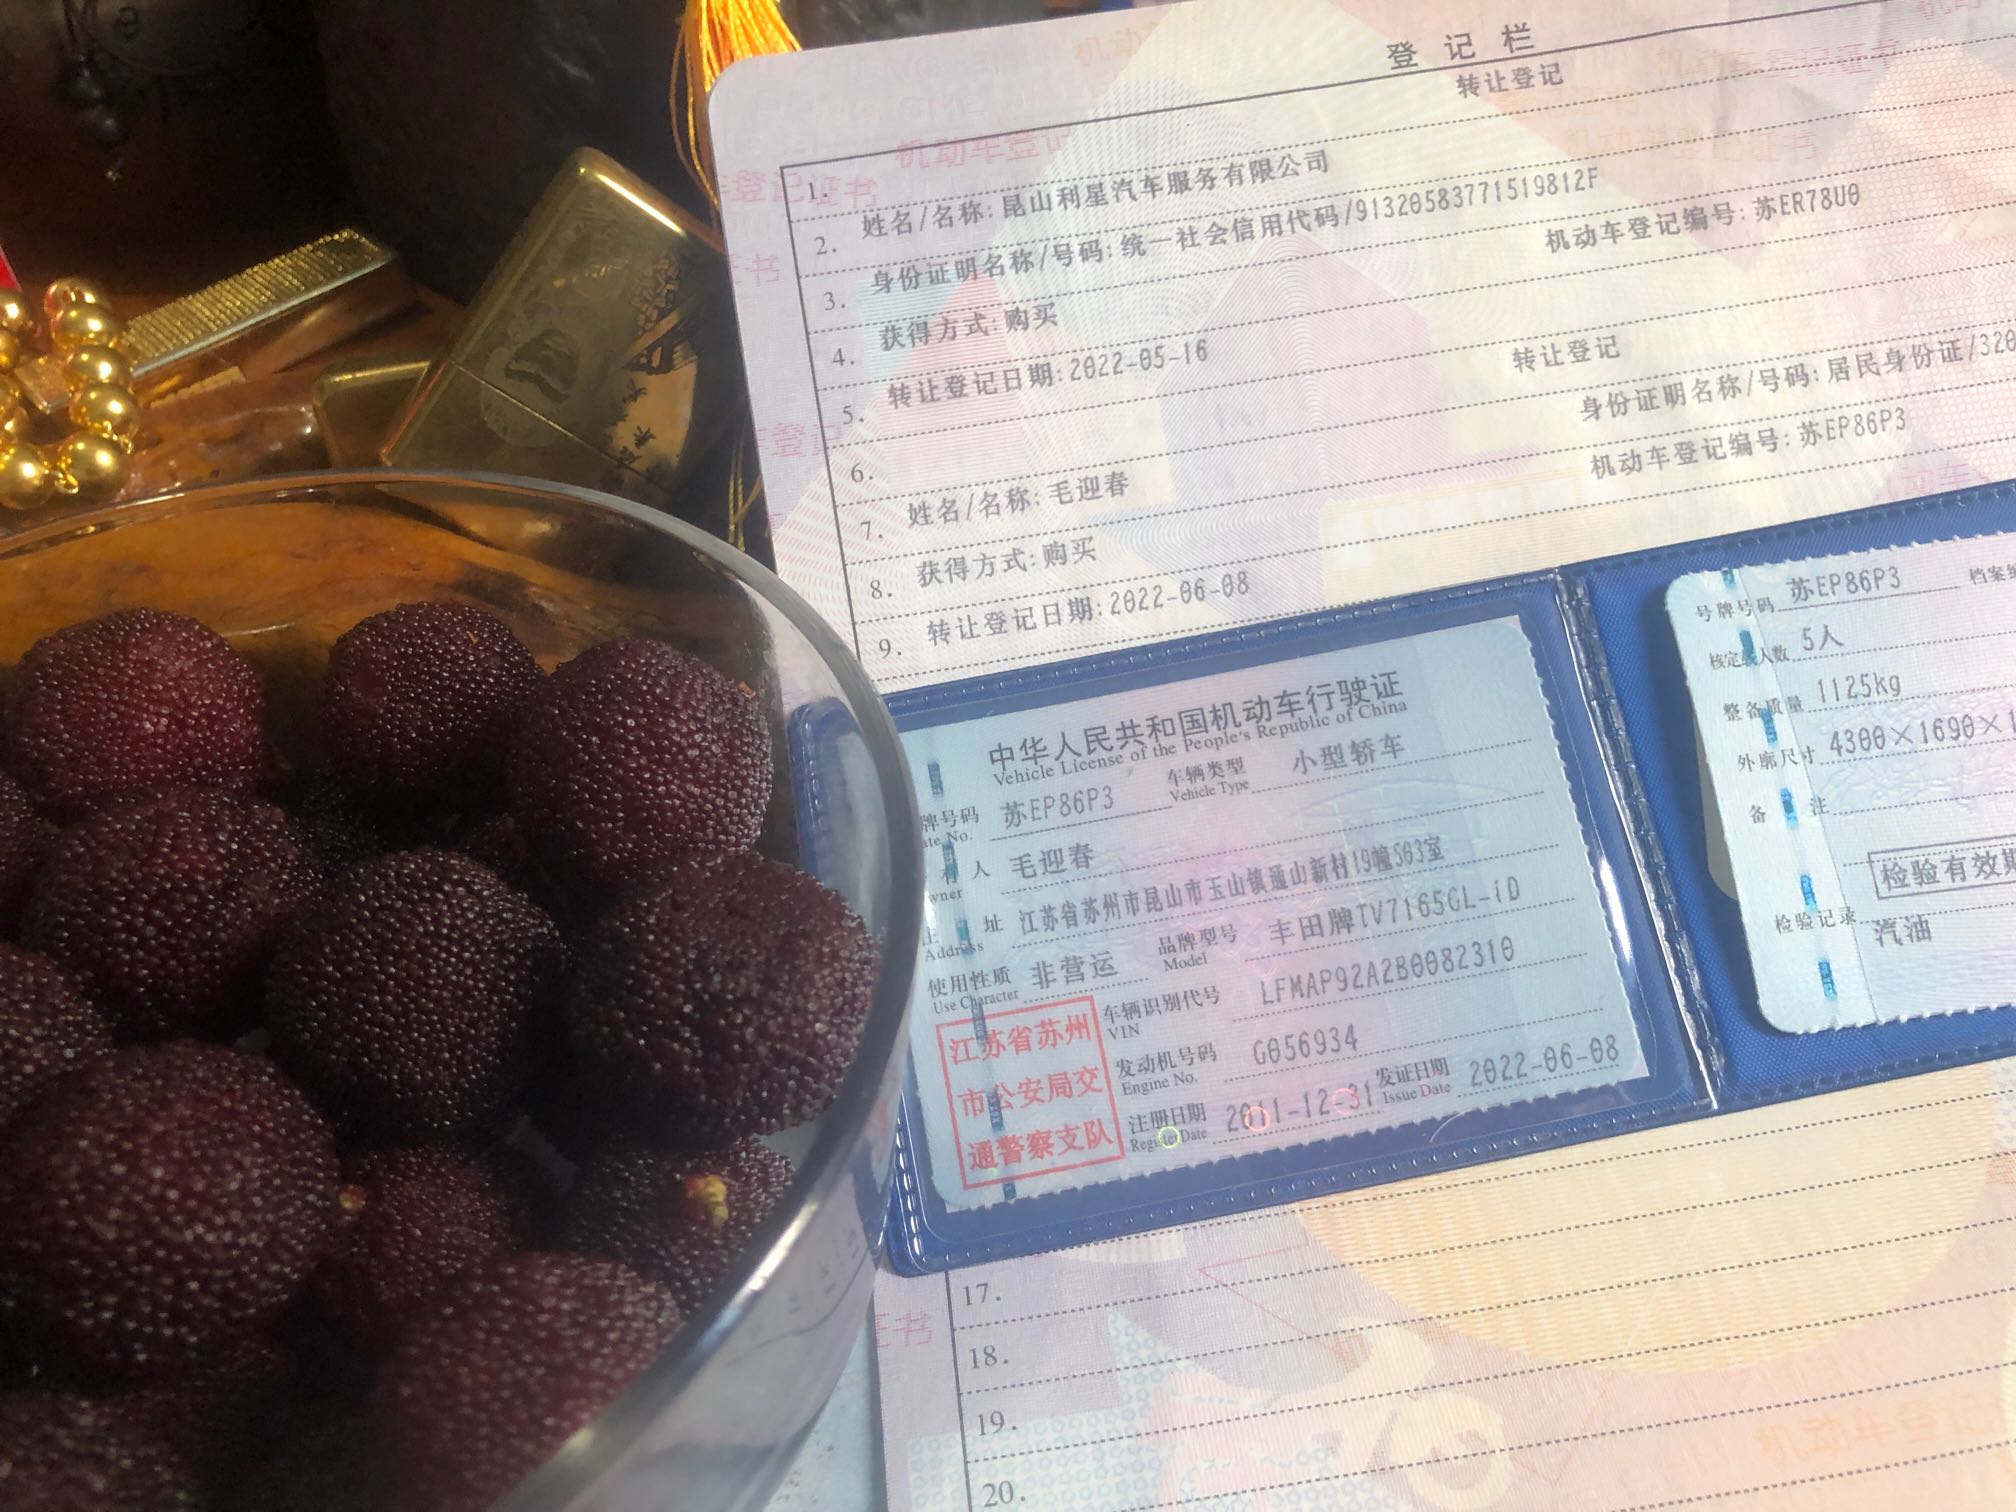 登记栏
转让登记
1. 姓名/名称:昆山利星汽车服务有限公司
2. 身份证明名称/号码:统一社会信用代码/91320583771519812F
3. 获得方式:购买 机动车登记编号:苏ER78U0
4. 转让登记日期:2022-05-16
5. 转让登记
6. 姓名/名称:毛迎春 身份证明名称/号码:居民身份证/320
7. 获得方式:购买 机动车登记编号:苏EP86P3
8. 转让登记日期:2022-06-08
9.
中华人民共和国机动车行驶证
Vehicle License of the People's Republic of China
牌号码 苏EP86P3 车辆类型 小型轿车
ate No. Vehicle Type
有人 毛迎春
wner
址 江苏省苏州市昆山市玉山镇通山新村19幢503室
Address
使用性质 非营运 品牌型号 丰田牌TV7165GL-iD
Use Character Model
车辆识别代号 LFMAP92A2B0082310
VIN
发动机号码 G056934
Engine No.
注册日期 2011-12-31 发证日期 2022-06-08
Register Date Issue Date
江苏省苏州
市公安局交
通警察支队
号牌号码 苏EP86P3 档案编
核定载人数 5人
整备质量 1125kg
外廓尺寸 4300×1690×1
备注
检验有效期
检验记录 汽油
17.
18.
19.
20.
机动车登记证书